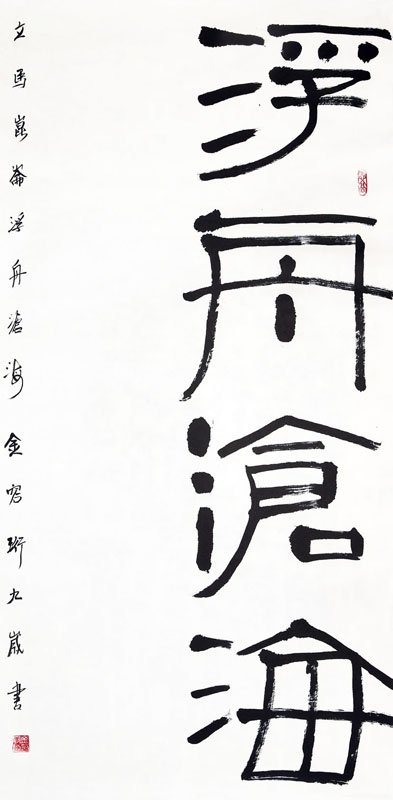 浮舟滄海
立馬崑崙浮舟滄海金哈珩九歲書